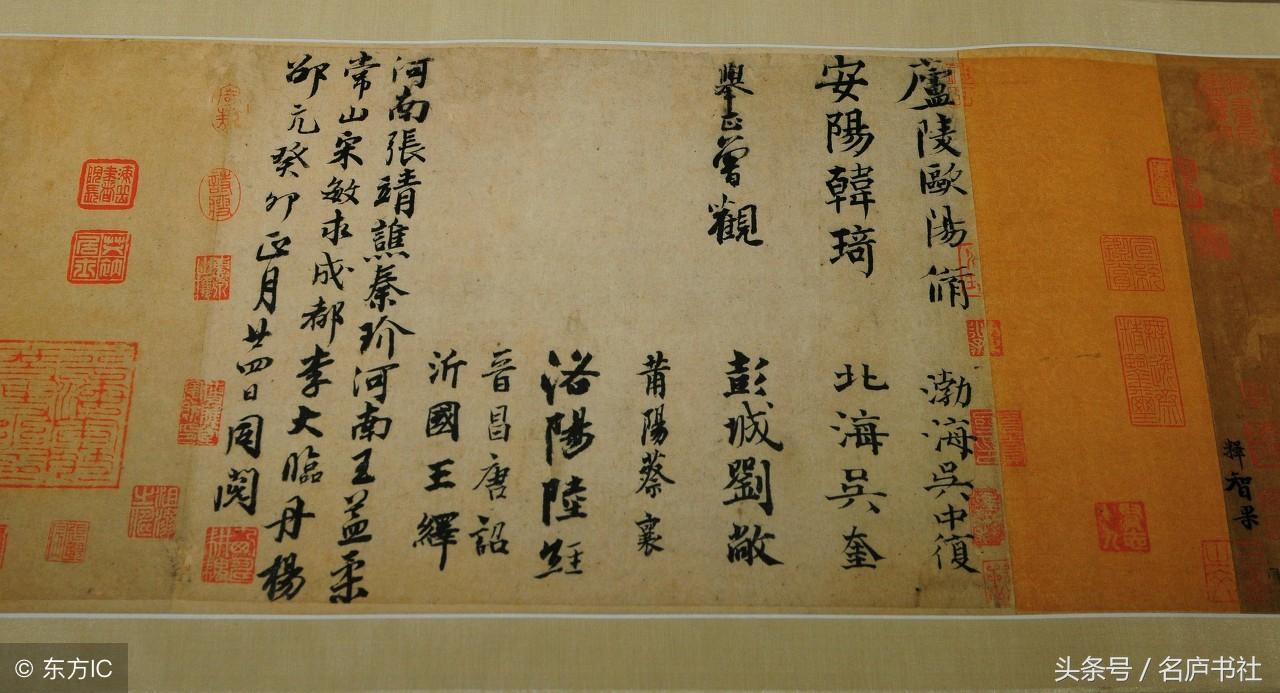 釋智果
廬陵歐陽脩
渤海吳中復
安陽韓琦
北海吳奎
舉正曾觀
彭城劉敞
莆陽蔡襄
洛陽陸經
晉昌唐詔
沂國王繹
河南張靖譙秦玠河南王益柔
常山宋敏求成都李大臨丹楊
邵亢癸卯正月廿四日同閱
© 东方IC
头条号 / 名庐书社